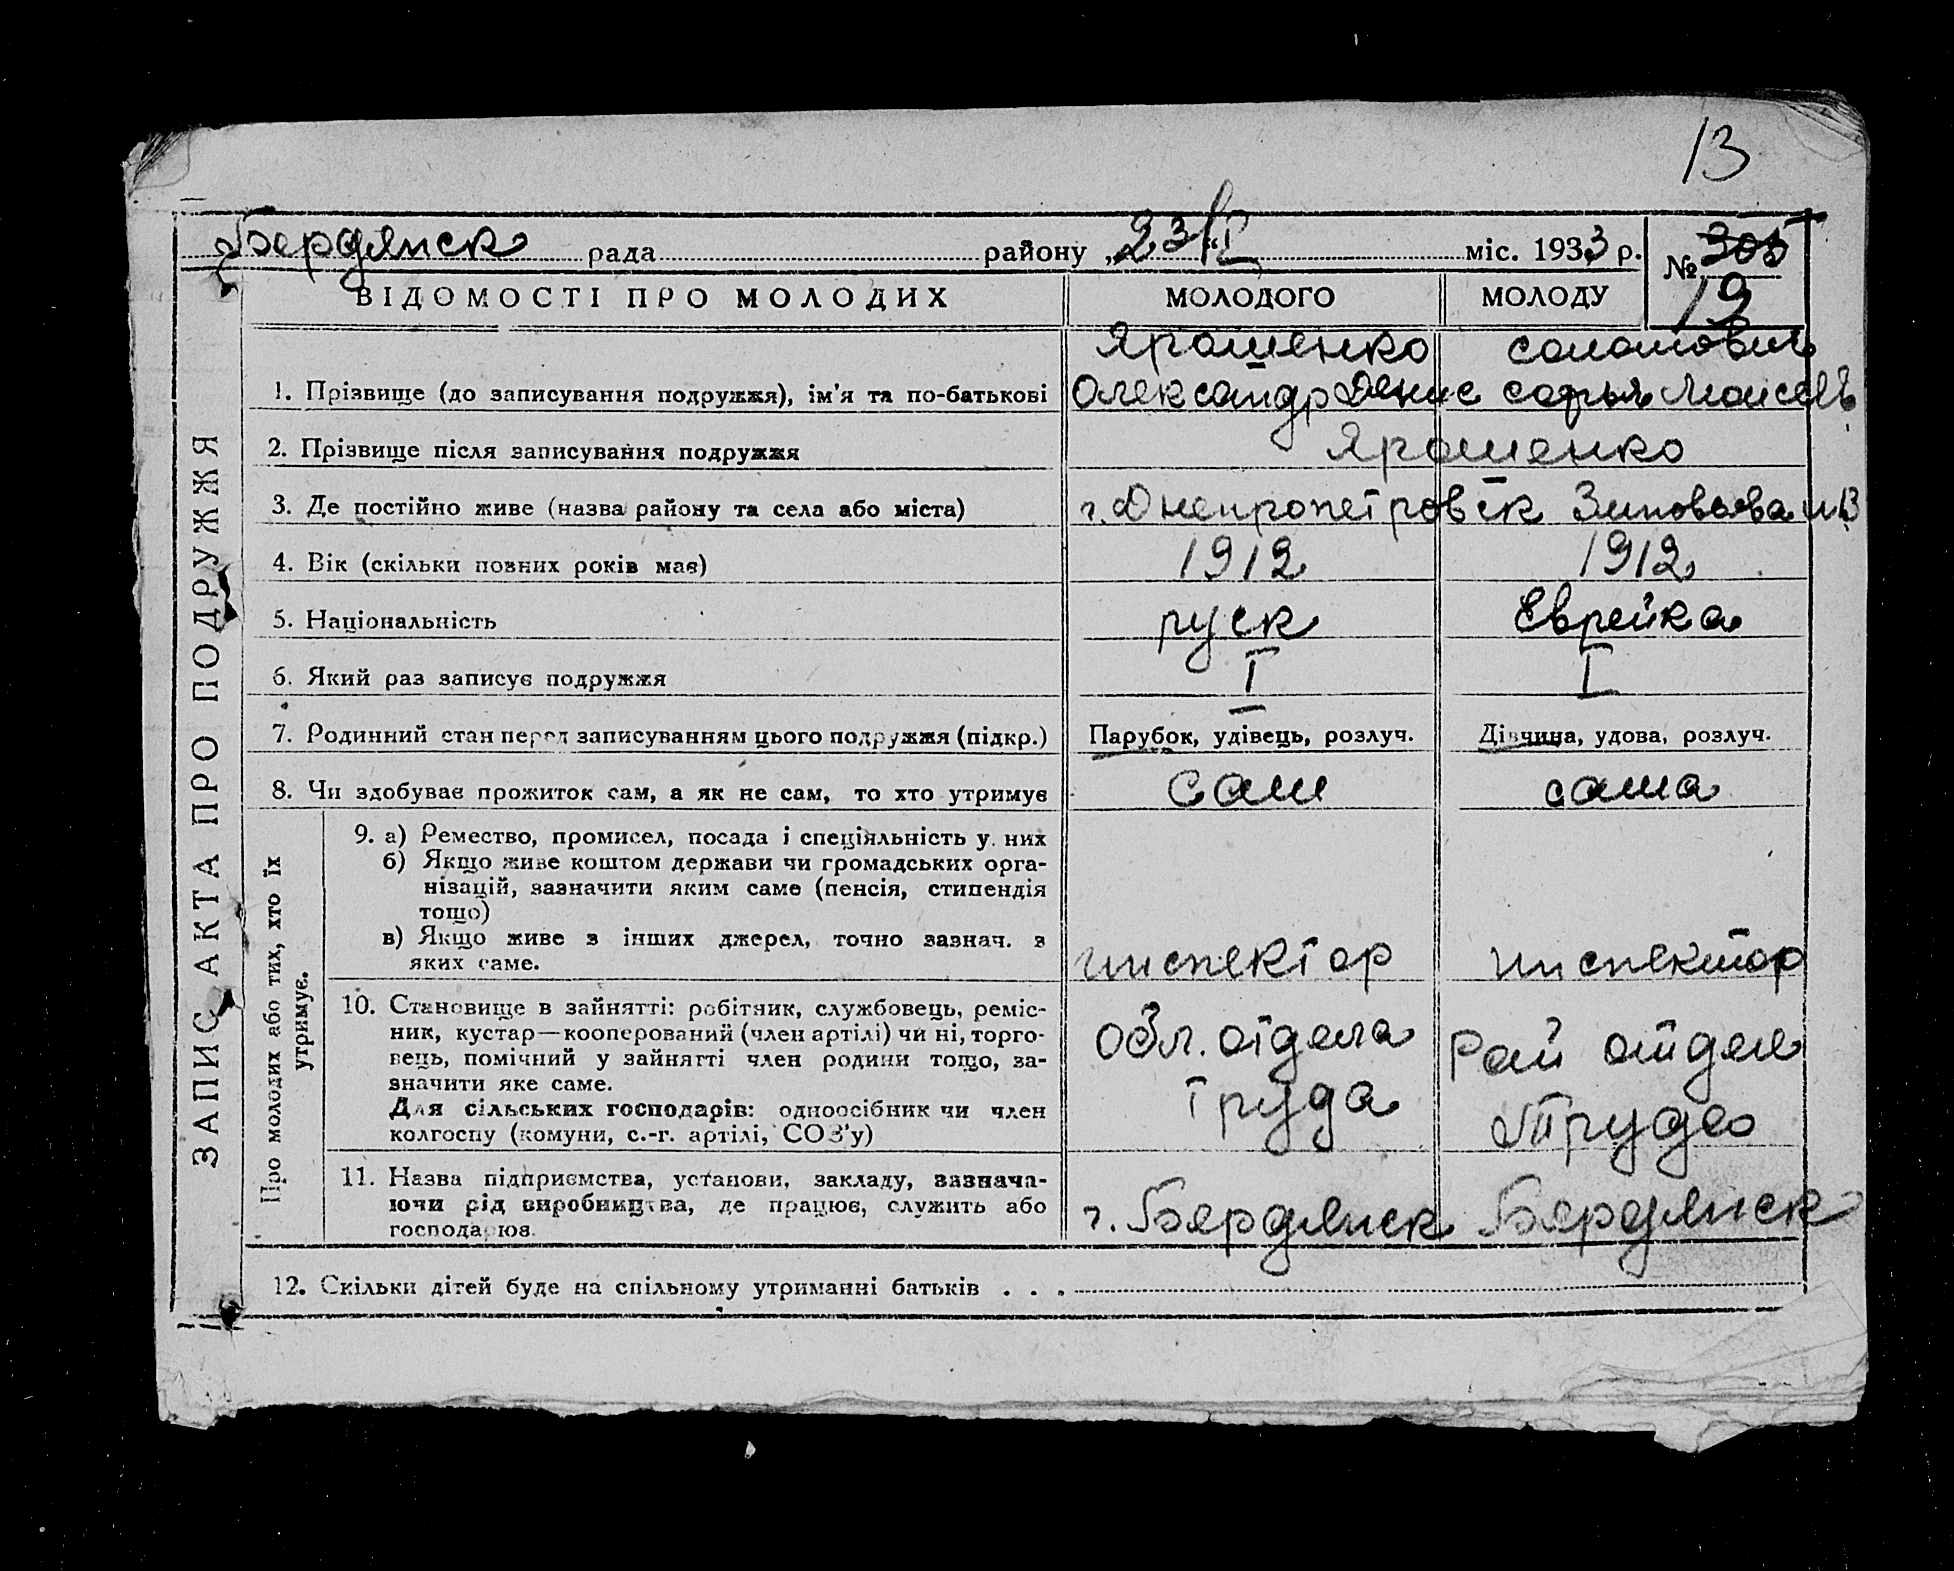 13
Бердянск рада району „23“ міс. 1933 р. № 305
19
ВІДОМОСТІ ПРО МОЛОДИХ МОЛОДОГО МОЛОДУ
ЗАПИС АКТА ПРО ПОДРУЖЖЯ
Ярошенко Соломович
1. Прізвище (до записування подружжя), ім'я та по-батькові Олександр Денис Софья Моисеев
2. Прізвище після записування подружжя Ярошенко
3. Де постійно живе (назва району та села або міста) г. Днепропетровск Зиновьева
4. Вік (скільки повних років має) 1912 1912
5. Національність руск Еврейка
6. Який раз записує подружжя I I
7. Родинний стан перед записуванням цього подружжя (підкр.) Парубок, удівець, розлуч. Дівчина, удова, розлуч.
8. Чи здобуває прожиток сам, а як не сам, то хто утримує сам сама
Про молодих або тих, хто їх
утримує.
9. а) Ремество, промисел, посада і спеціяльність у них
б) Якщо живе коштом держави чи громадських орга-
нізацій, зазначити яким саме (пенсія, стипендія
тощо)
в) Якщо живе з інших джерел, точно зазнач. з
яких саме. инспектор инспектор
10. Становище в зайнятті: робітник, службовець, реміс-
ник, кустар—кооперований (член артілі) чи ні, торго-
вець, помічний у зайнятті член родини тощо, за-
значити яке саме.
Для сільських господарів: одноосібник чи член
колгоспу (комуни, с.-г. артілі, СОЗ'у)
Обл. отдела Рай отдел
труда Труда
11. Назва підприємства, установи, закладу, зазнача-
ючи рід виробництва, де працює, служить або
господарює. г. Бердянск Бердянск
12. Скільки дітей буде на спільному утриманні батьків . . .